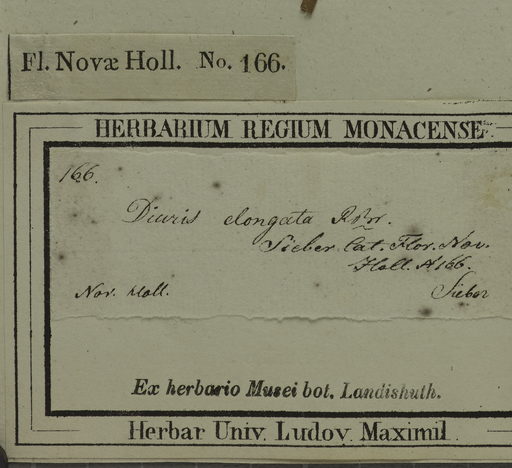 Fl. Novæ Holl. No. 166.
HERBARIUM REGIUM MONACENSE
166.
Diuris elongata RBr.
Sieber Cat. Flor. Nov.
Holl. № 166.
Nov. Holl. Sieber
Ex herbario Musei bot. Landishuth.
Herbar Univ. Ludov. Maximil.